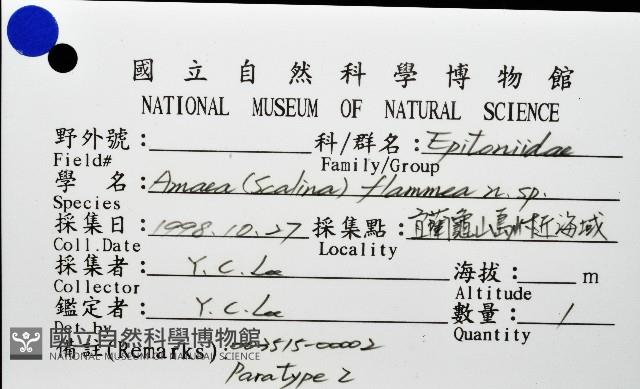 國立自然科學博物館
NATIONAL MUSEUM OF NATURAL SCIENCE
野外號: 科/群名: Epitoniidae
Field# Family/Group
學 名: Amaea (Scalina) flammea n. sp.
Species
採集日: 1998.10.27 採集點: 宜蘭龜山島附近海域
Coll.Date Locality
採集者: Y. C. Lee 海拔: m
Collector Altitude
鑑定者: Y. C. Lee 數量: 1
Det.by Quantity
國立自然科學博物館
NATIONAL MUSEUM OF NATURAL SCIENCE
備註(Remarks): 003515-00002
Paratype 2